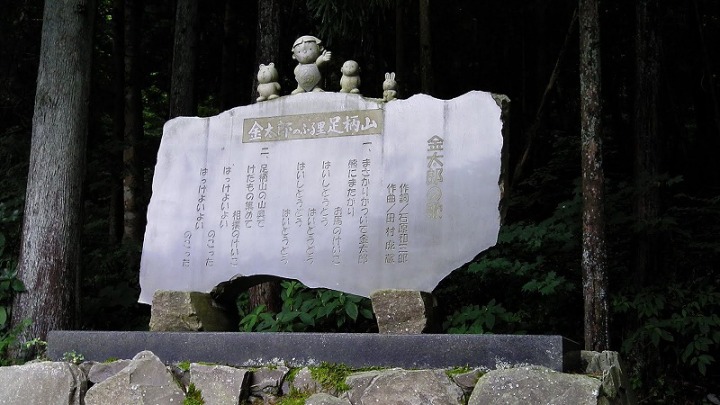 金太郎のふる里足柄山
金太郎の歌
作詞／石原和三郎
作曲／田村虎蔵
一、まさかりかついで金太郎
熊にまたがり お馬のけいこ
はいしどうどう はいどうどう
はいしどうどう はいどうどう
二、足柄山の山奥で
けだもの集めて 相撲のけいこ
はっけよいよい のこった
はっけよいよい のこった